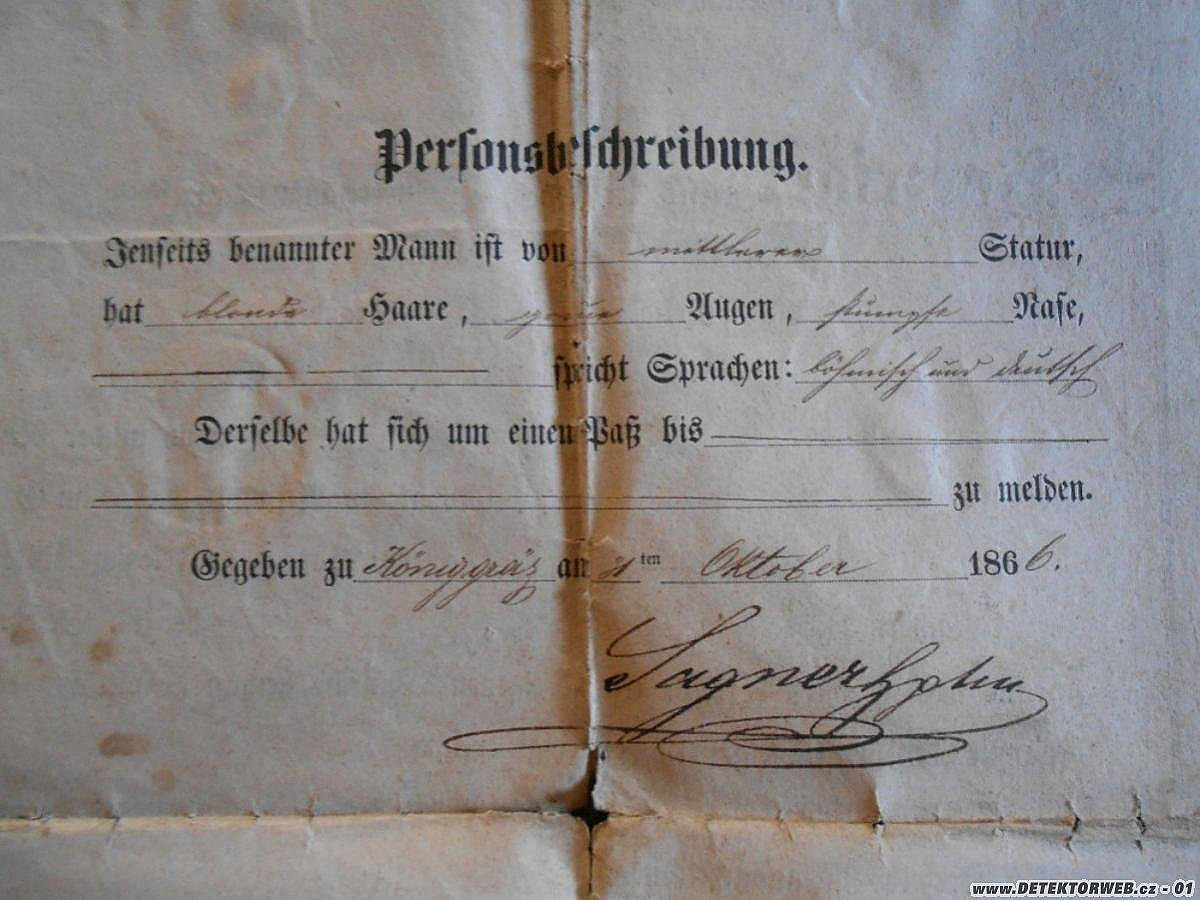 Personsbeschreibung.
Jenseits benannter Mann ist von mittlerer Statur,
hat blonde Haare, graue Augen, stumpfe Nase,
spricht Sprachen: böhmisch und deutsch
Derselbe hat sich um einen Paß bis
zu melden.
Gegeben zu Königgräz am ten Oktober 1866.
Sagner Hptm
www.DETEKTORWEB.cz - 01